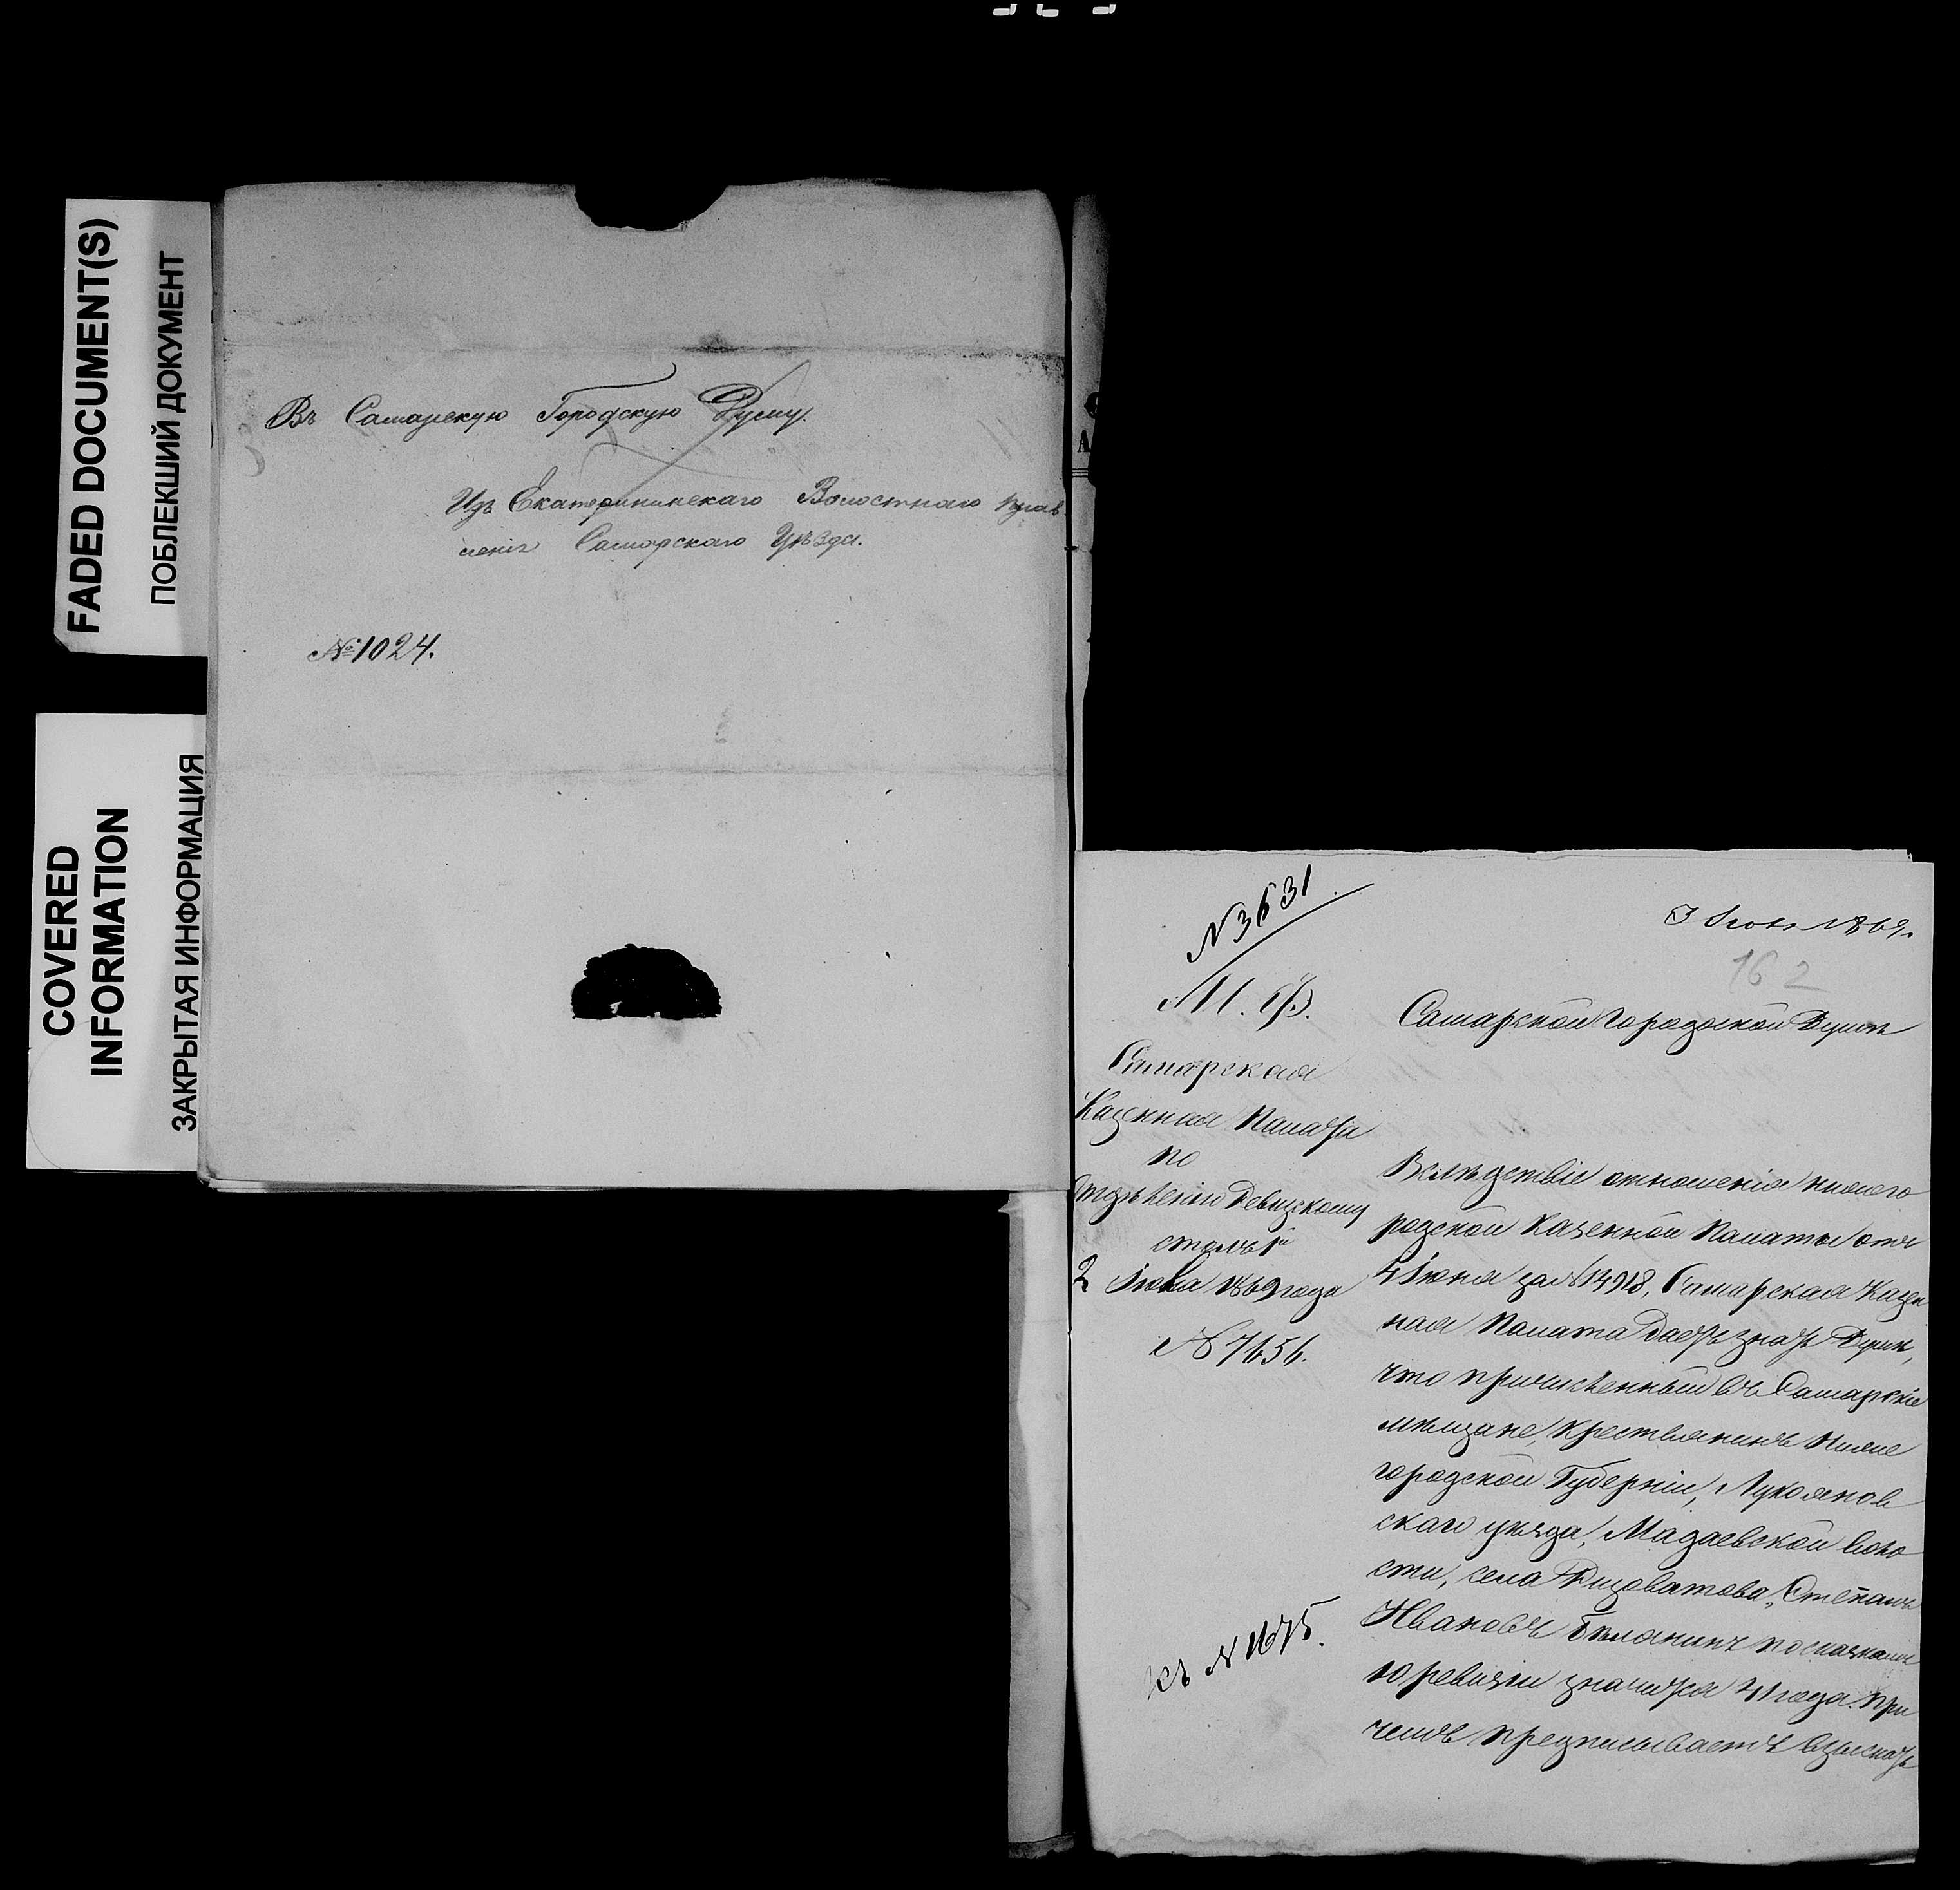 FADED DOCUMENT(S)
ПОБЛЕКШИЙ ДОКУМЕНТ
COVERED
INFORMATION
ЗАКРЫТАЯ ИНФОРМАЦИЯ
Въ Самарскую Городскую Думу.
Изъ Екатерининскаго Волостнаго прав
ленія Самарскаго Уѣзда.
№ 1024.
N 3631
М. Ф.
Самарская
Казенная Палата
по
Отдѣленію Ревизскому
столъ 1й
2 Іюля 1869 года
№ 7656.
Къ N 1675.
3 Іюля 1869.
162
Самарской Городской Думѣ
Вслѣдствіе отношенія Нижего
родской Казенной Палаты отъ
4 Іюня за № 14918, Самарская Казен
ная Палата даетъ знать Думѣ,
что причисленный въ Самарскіе
мѣщане, крестьянинъ Ниже
городской Губерніи, Лукоянов
скаго уѣзда, Мадаевской воло
сти, села Дивоватова, Степанъ
Ивановъ Бѣлянинъ по сказкамъ
10 ревизіи значится 41 года. При
чемъ предписываетъ взыскать